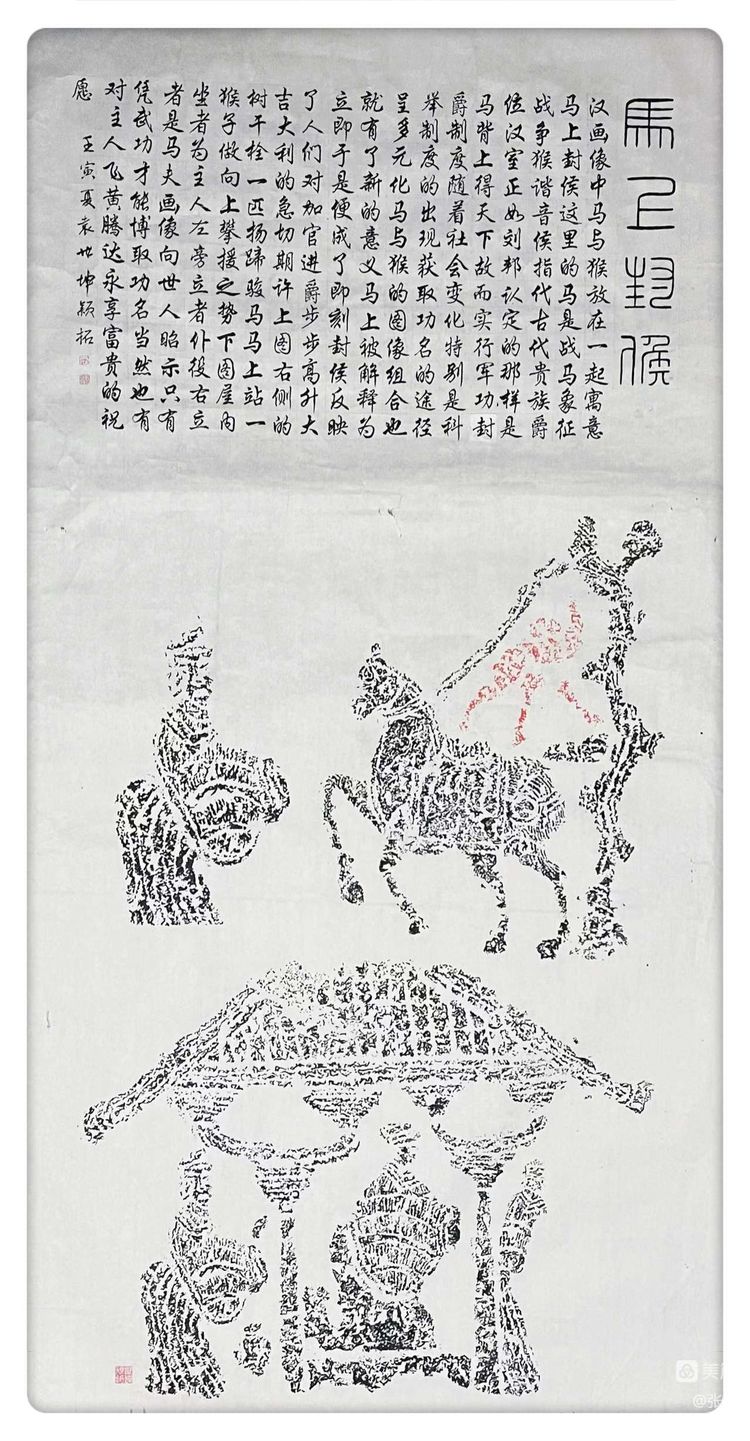 馬上封侯
汉画像中马与猴放在一起寓意
马上封侯这里的马是战马象征
战争猴谐音侯指代古代贵族爵
位汉室正如刘邦认定的那样是
马背上得天下故而实行军功封
爵制度随着社会变化特别是科
举制度的出现获取功名的途径
呈多元化马与猴的图像组合也
就有了新的意义马上被解释为
立即于是便成了即刻封侯反映
了人们对加官进爵步步高升大
吉大利的急切期许上图右侧的
树干栓一匹扬蹄骏马马上站一
猴子做向上攀援之势下图屋内
坐者为主人左旁立者仆役右立
者是马夫画像向世人昭示只有
凭武功才能博取功名当然也有
对主人飞黄腾达永享富贵的祝
愿
壬寅夏袁世坤颖拓
美
@张